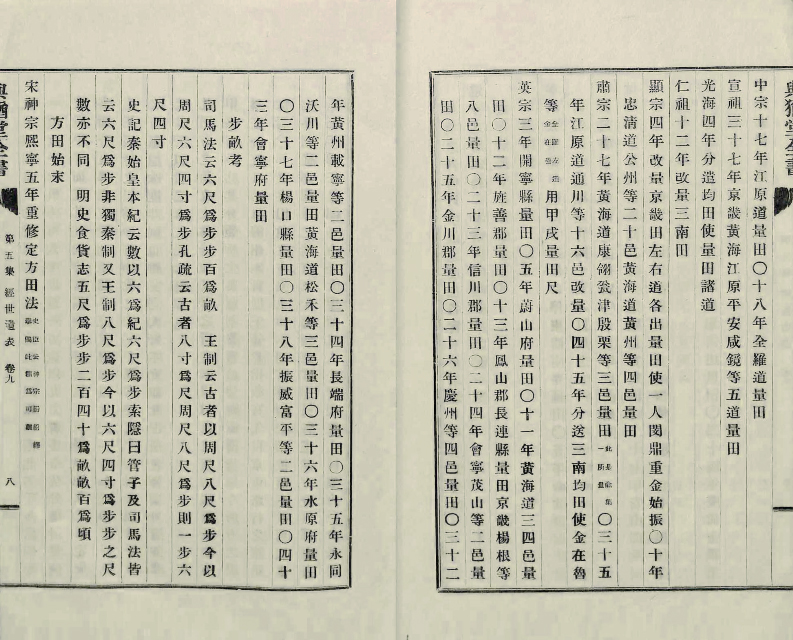 中宗十七年江原道量田〇十八年全羅道量田
宣祖三十七年京畿黃海江原平安咸鏡等五道量田
光海四年分遣均田使量田諸道
仁祖十二年改量三南田
顯宗四年改量京畿田左右道各出量田使一人閔鼎重金始振〇十年
忠淸道公州等二十邑黃海道黃州等四邑量田
肅宗二十七年黃海道康翎瓮津殷栗等三邑量田〇三十五
年江原道通川等十六邑改量〇四十五年分送三南均田使金在魯
等用甲戌量田尺
英宗三年開寧縣量田〇五年蔚山府量田〇十一年黃海道三四邑量
田〇十二年旌善郡量田〇十三年鳳山郡長連縣量田京畿楊根等
八邑量田〇二十三年信川郡量田〇二十四年會寧茂山等二邑量
田〇二十五年金川郡量田〇二十六年慶州等四邑量田〇三十二
年黃州載寧等二邑量田〇三十四年長端府量田〇三十五年永同
沃川等二邑量田黃海道松禾等三邑量田〇三十六年水原府量田
〇三十七年楊口縣量田〇三十八年振威富平等二邑量田〇四十
三年會寧府量田
步畝考
司馬法云六尺爲步步百爲畝 王制云古者以周尺八尺爲步今以
周尺六尺四寸爲步孔疏云古者八寸爲尺周尺八尺爲步則一步六
尺四寸
史記秦始皇本紀云數以六爲紀六尺爲步索隱曰管子及司馬法皆
云六尺爲步非獨秦制又王制八尺爲步今以六尺四寸爲步步之尺
數亦不同 明史食貨志五尺爲步步二百四十爲畝畝百爲頃
方田始末
宋神宗熙寧五年重修定方田法
第五集 經世遺表 卷九
八